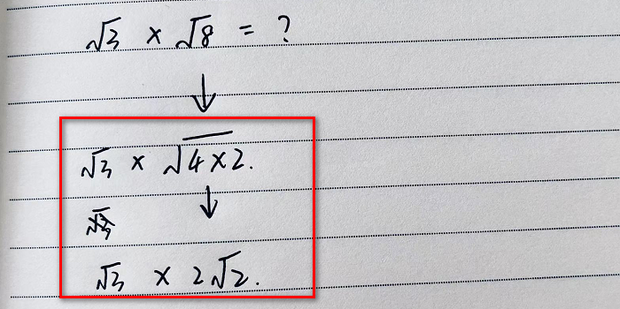 √3 × √8 = ?
↓
√3 × √4×2.
↓
√3 × 2√2.